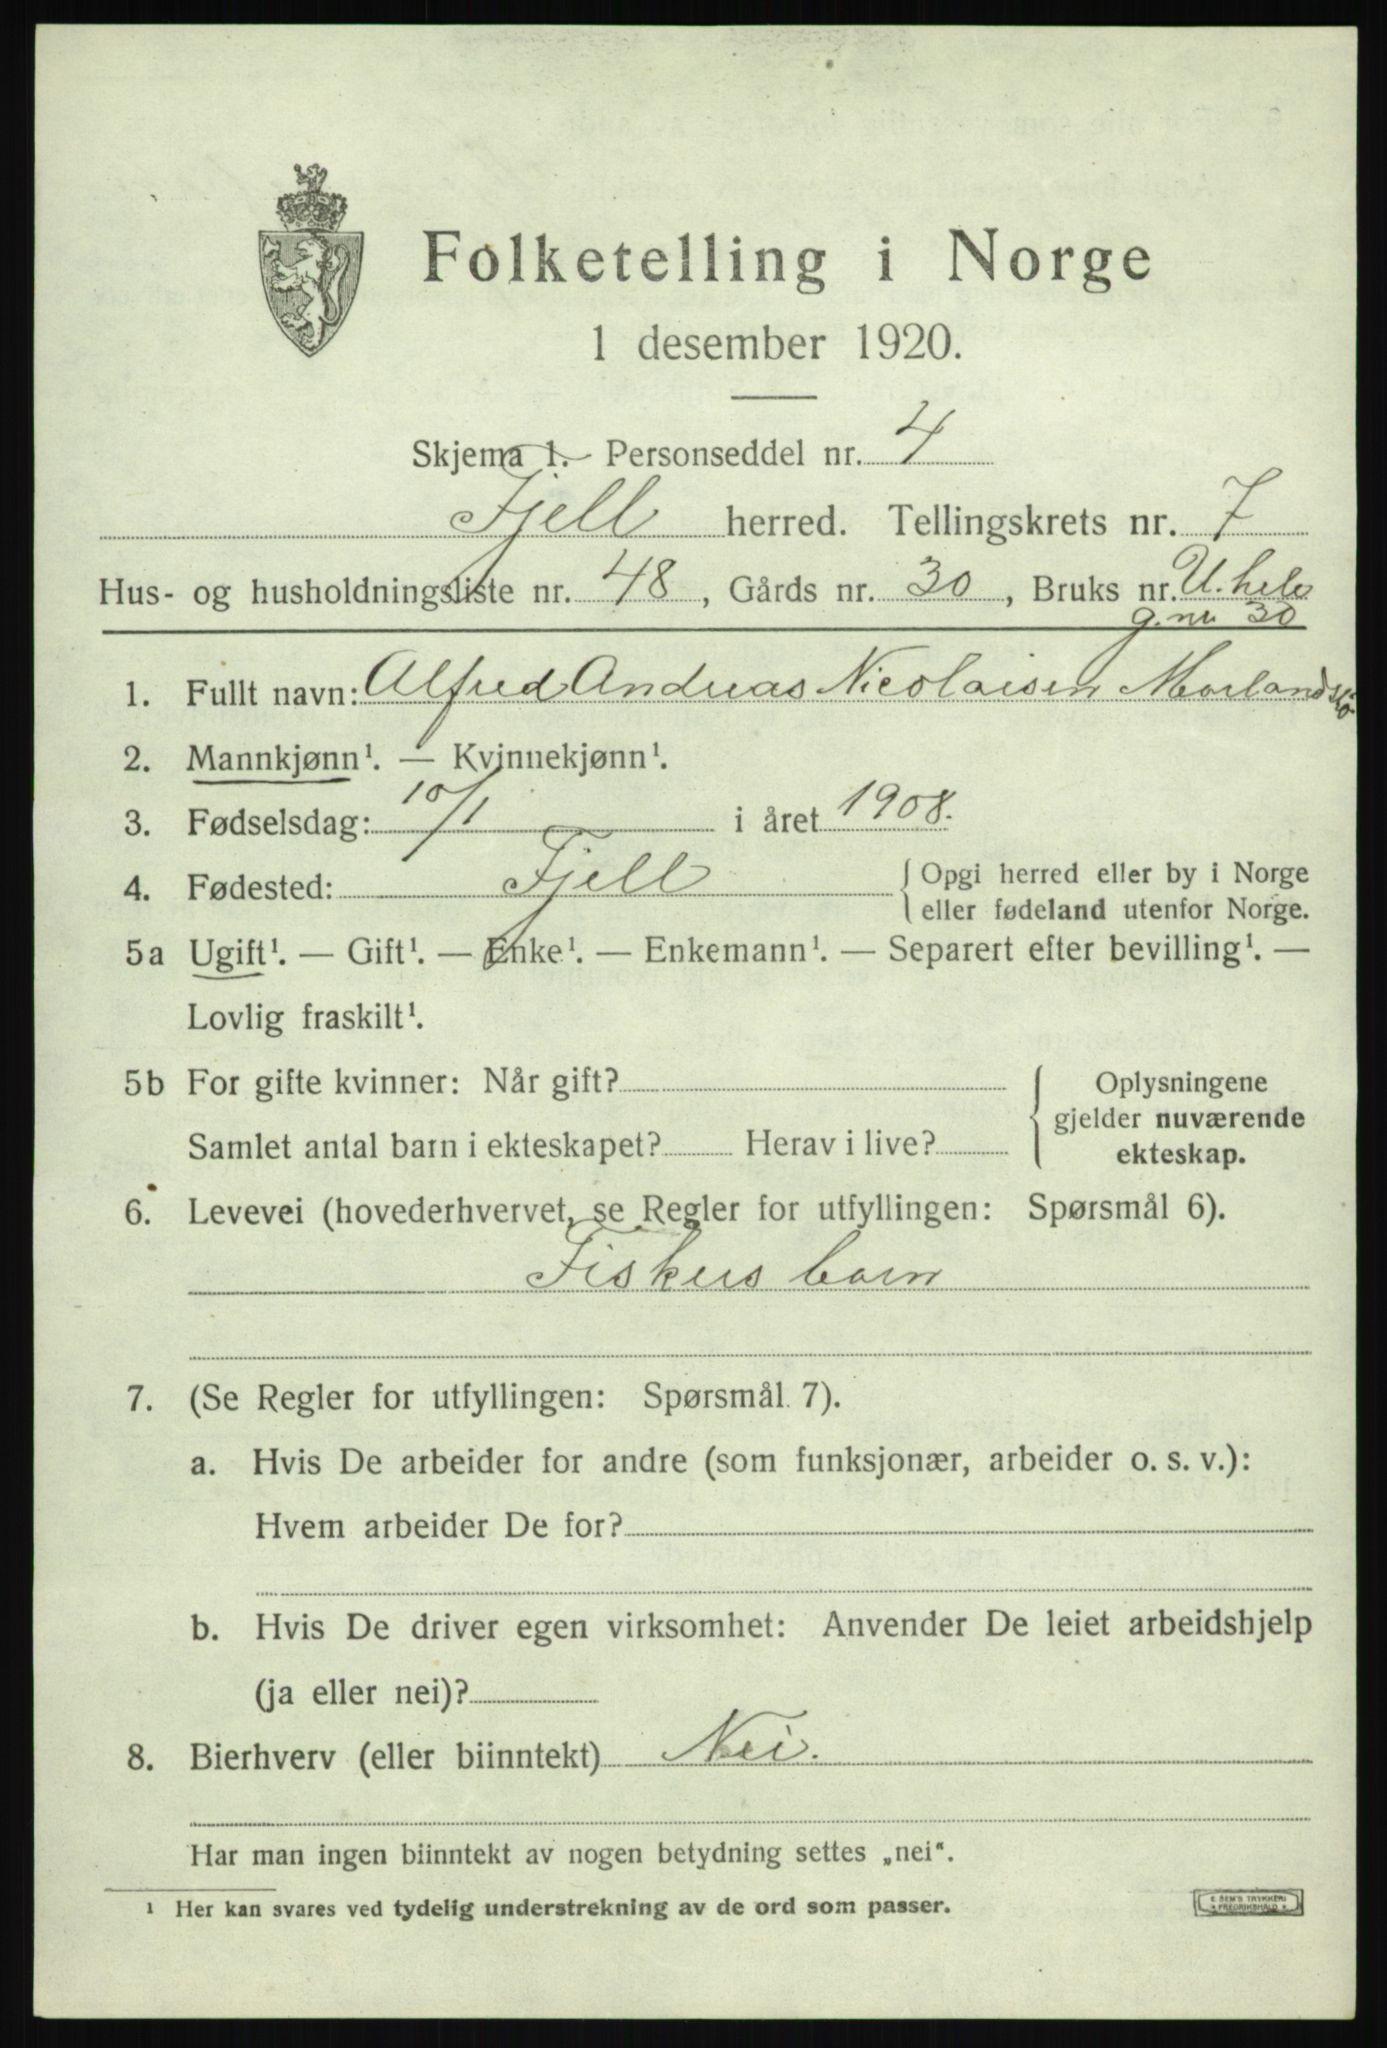 Folketelling i Norge
1 desember 1920.
Skjema 1. Personseddel nr. 4
Fjell herred. Tellingskrets nr. 7
Hus- og husholdningsliste nr. 48, Gårds nr. 30, Bruks nr. U. hele
g. nr 30
1. Fullt navn: Alfred Andreas Nicolaisen
2. Mannkjønn¹. — Kvinnekjønn¹.
3. Fødselsdag: 10/1 i året 1908.
4. Fødested: Fjell { Opgi herred eller by i Norge
eller fødeland utenfor Norge.
5a Ugift¹. — Gift¹. — Enke¹. — Enkemann¹. — Separert efter bevilling¹. —
Lovlig fraskilt¹.
5b For gifte kvinner: Når gift? { Oplysningene
gjelder nuværende
Samlet antal barn i ekteskapet? Herav i live?
ekteskap.
6. Levevei (hovederhvervet, se Regler for utfyllingen: Spørsmål 6).
Fiskers barn
7. (Se Regler for utfyllingen: Spørsmål 7).
a. Hvis De arbeider for andre (som funksjonær, arbeider o. s. v.):
Hvem arbeider De for?
b. Hvis De driver egen virksomhet: Anvender De leiet arbeidshjelp
(ja eller nei)?
8. Bierhverv (eller biinntekt) Nei.
Har man ingen biinntekt av nogen betydning settes „nei“.
¹ Her kan svares ved tydelig understrekning av de ord som passer.
E. SEM'S TRYKKERI
* FREDRIKSHALD *